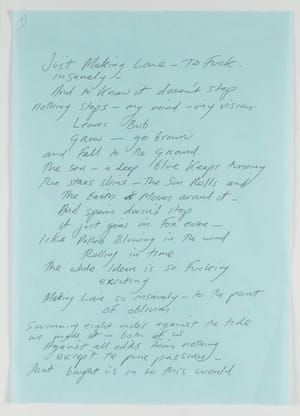 1)
Just Making Love – To Fuck.
insanely –
And to know it doesn't stop
nothing stops – my mind – my vision.
Leaves Bub
Grow – go brown
and fall to the Ground.
The sea – a deep blue keeps turning
The stars shine – The Sun Rolls and
The Earth Moves around it –
And doesn't stop
it just goes on for ever –
like Pollen Blowing in the wind
Rolling in time
The whole Idear is so fucking
exciting
Making Love so insanely – to the point
of oblivion
Swimming eight miles against the tide
we made it – both of us
Against all odds from nothing
except the pure passion –
That bought us in to this world.